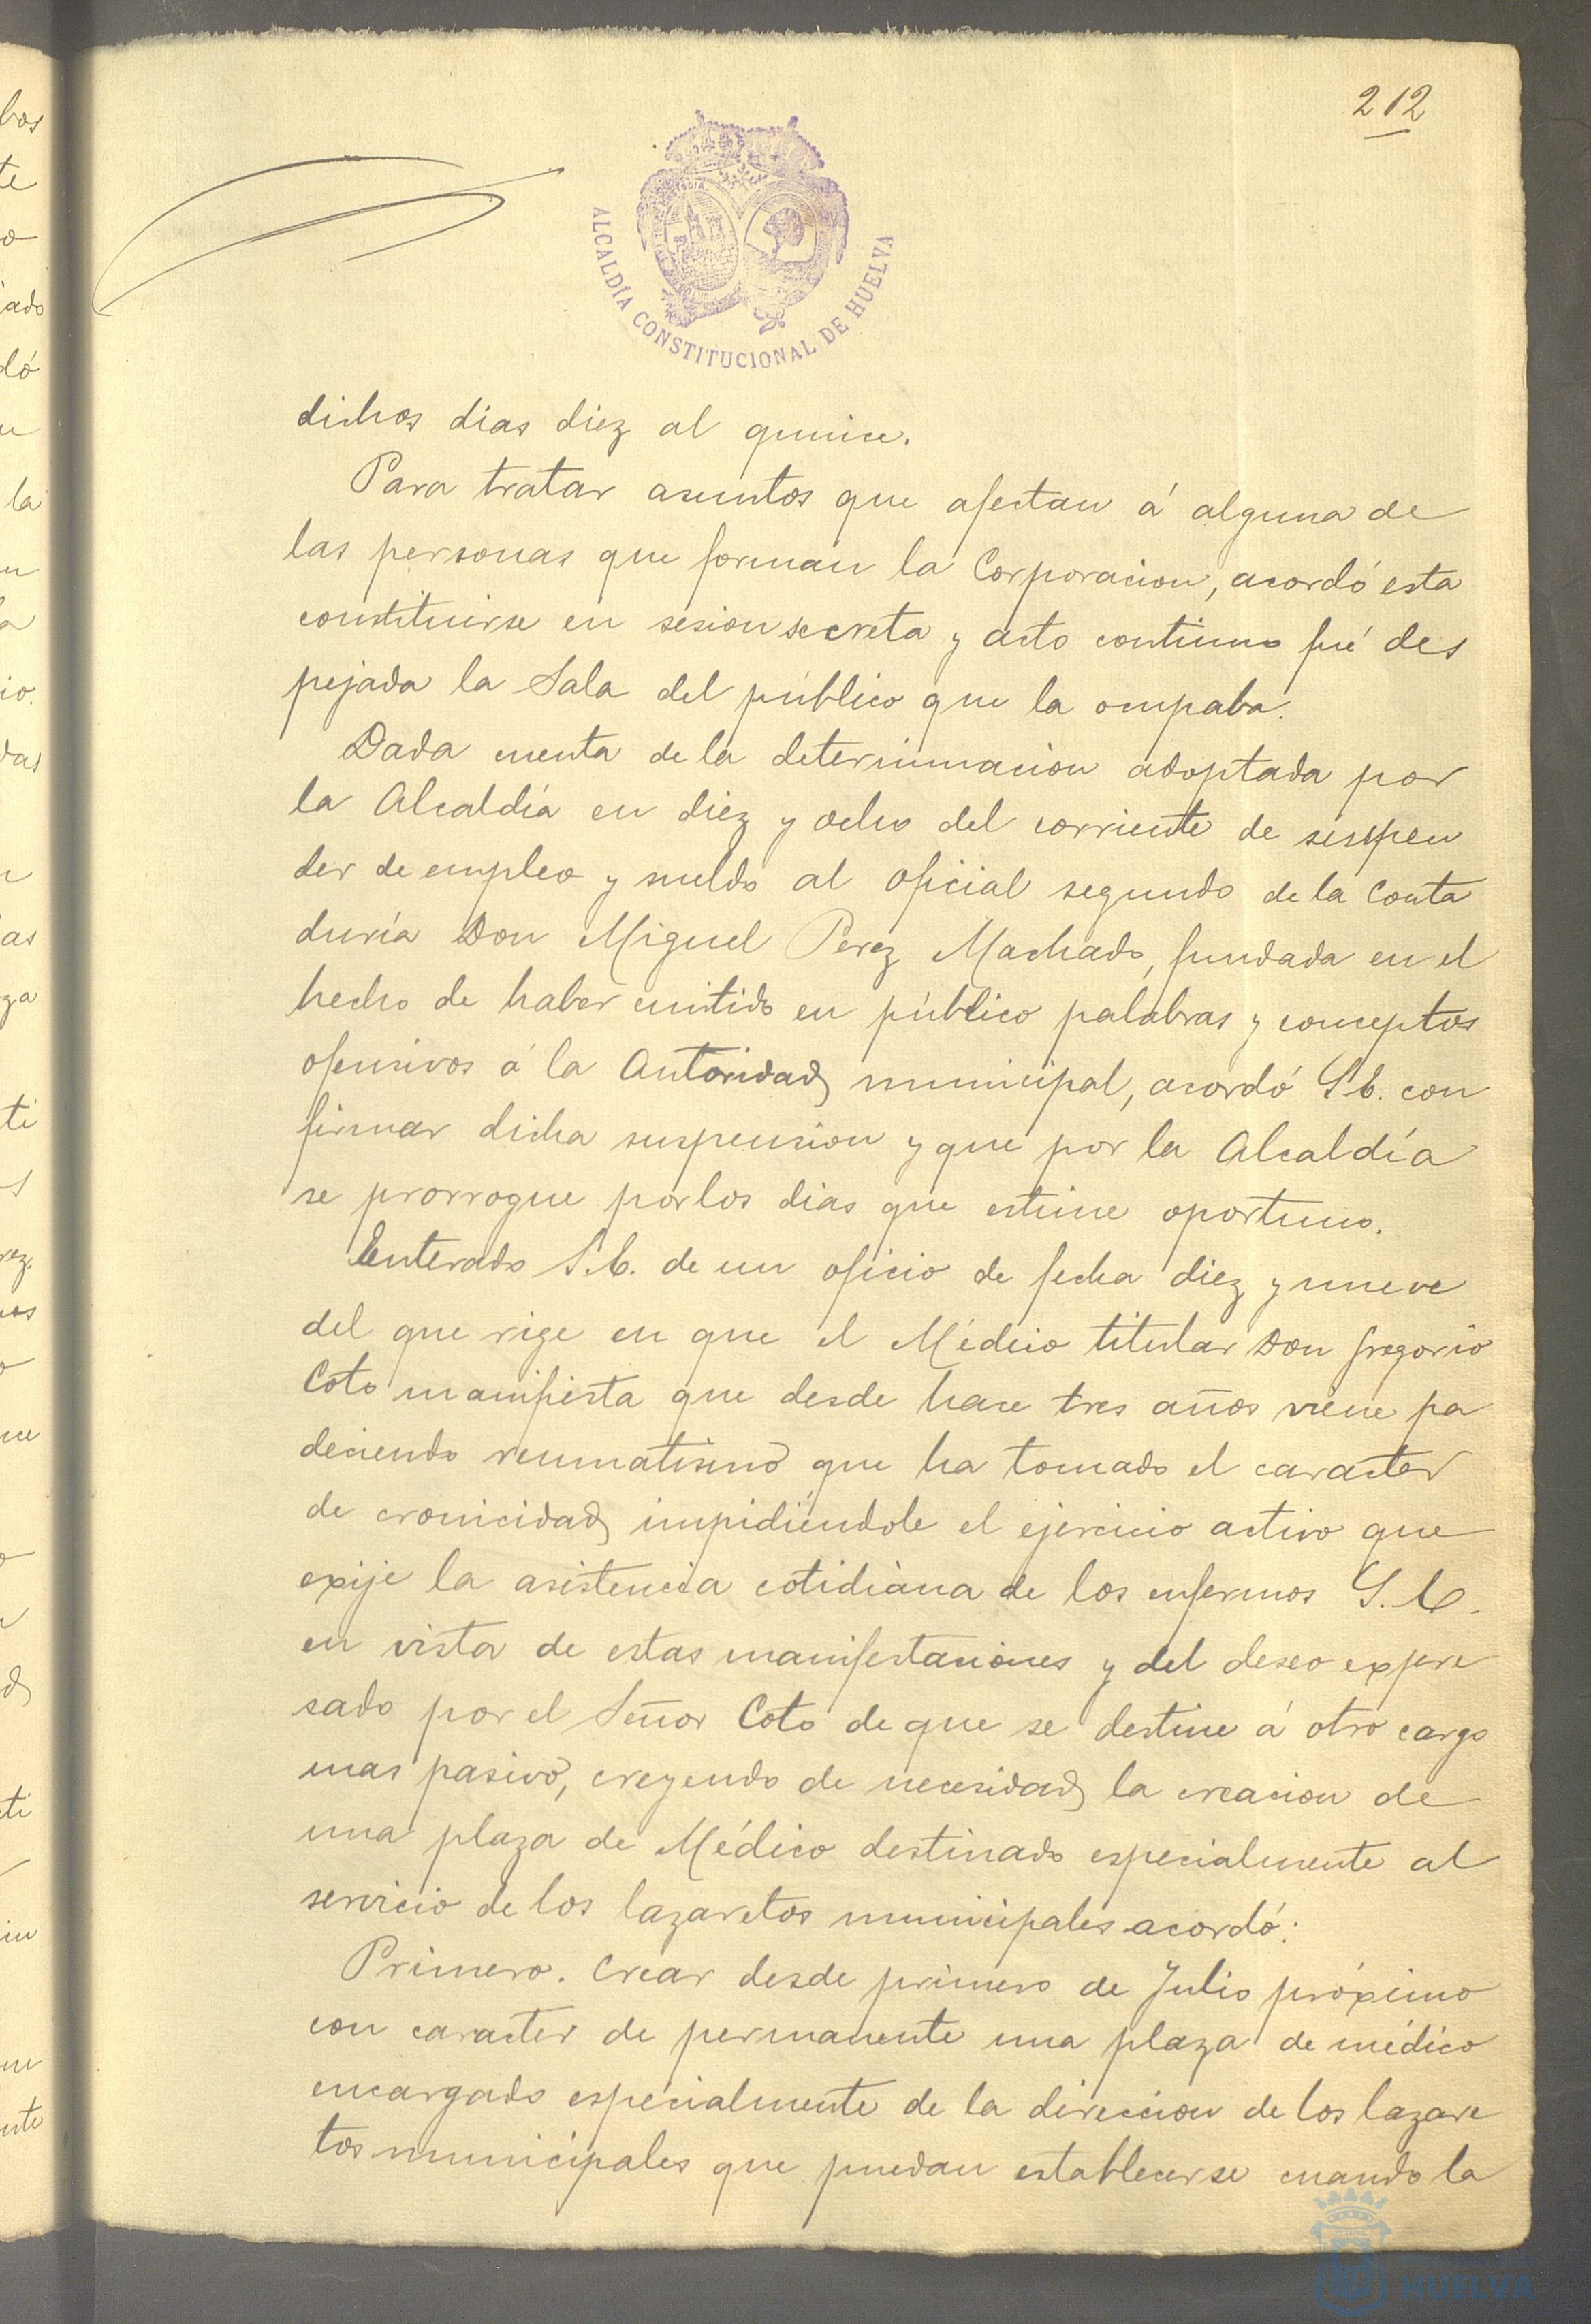 212
ALCALDÍA CONSTITUCIONAL DE HUELVA
dichos dias diez al quince.
Para tratar asuntos que afectan á alguna de
las personas que forman la Corporacion, acordó esta
constituirse en sesion secreta y acto continuo fué des
pejada la Sala del público que la ocupaba.
Dada cuenta de la determinacion adoptada por
la Alcaldía en diez y ocho del corriente de suspen
der de empleo y sueldo al oficial segundo de la Conta
duría Don Miguel Perez Machado, fundada en el
hecho de haber emitido en público palabras y conceptos
ofensivos á la Autoridad municipal, acordó S.C. con
firmar dicha suspension y que por la Alcaldía
se prorrogue por los dias que estime oportuno.
Enterado S.C. de un oficio de fecha diez y nueve
del que rige en que el Médico titular Don Gregorio
Coto manifiesta que desde hace tres años viene pa
deciendo reumatismo que ha tomado el caracter
de cronicidad impidiéndole el ejercicio activo que
exije la asistencia cotidiana de los enfermos S.C.
en vista de estas manifestaciones y del deseo expre
sado por el Señor Coto de que se destine á otro cargo
mas pasivo, creyendo de necesidad la creacion de
una plaza de Médico destinado especialmente al
servicio de los lazaretos municipales acordó:
Primero. Crear desde primero de Julio próximo
con caracter de permanente una plaza de médico
encargado especialmente de la direccion de los lazare
tos municipales que puedan establecerse cuando la
HUELVA